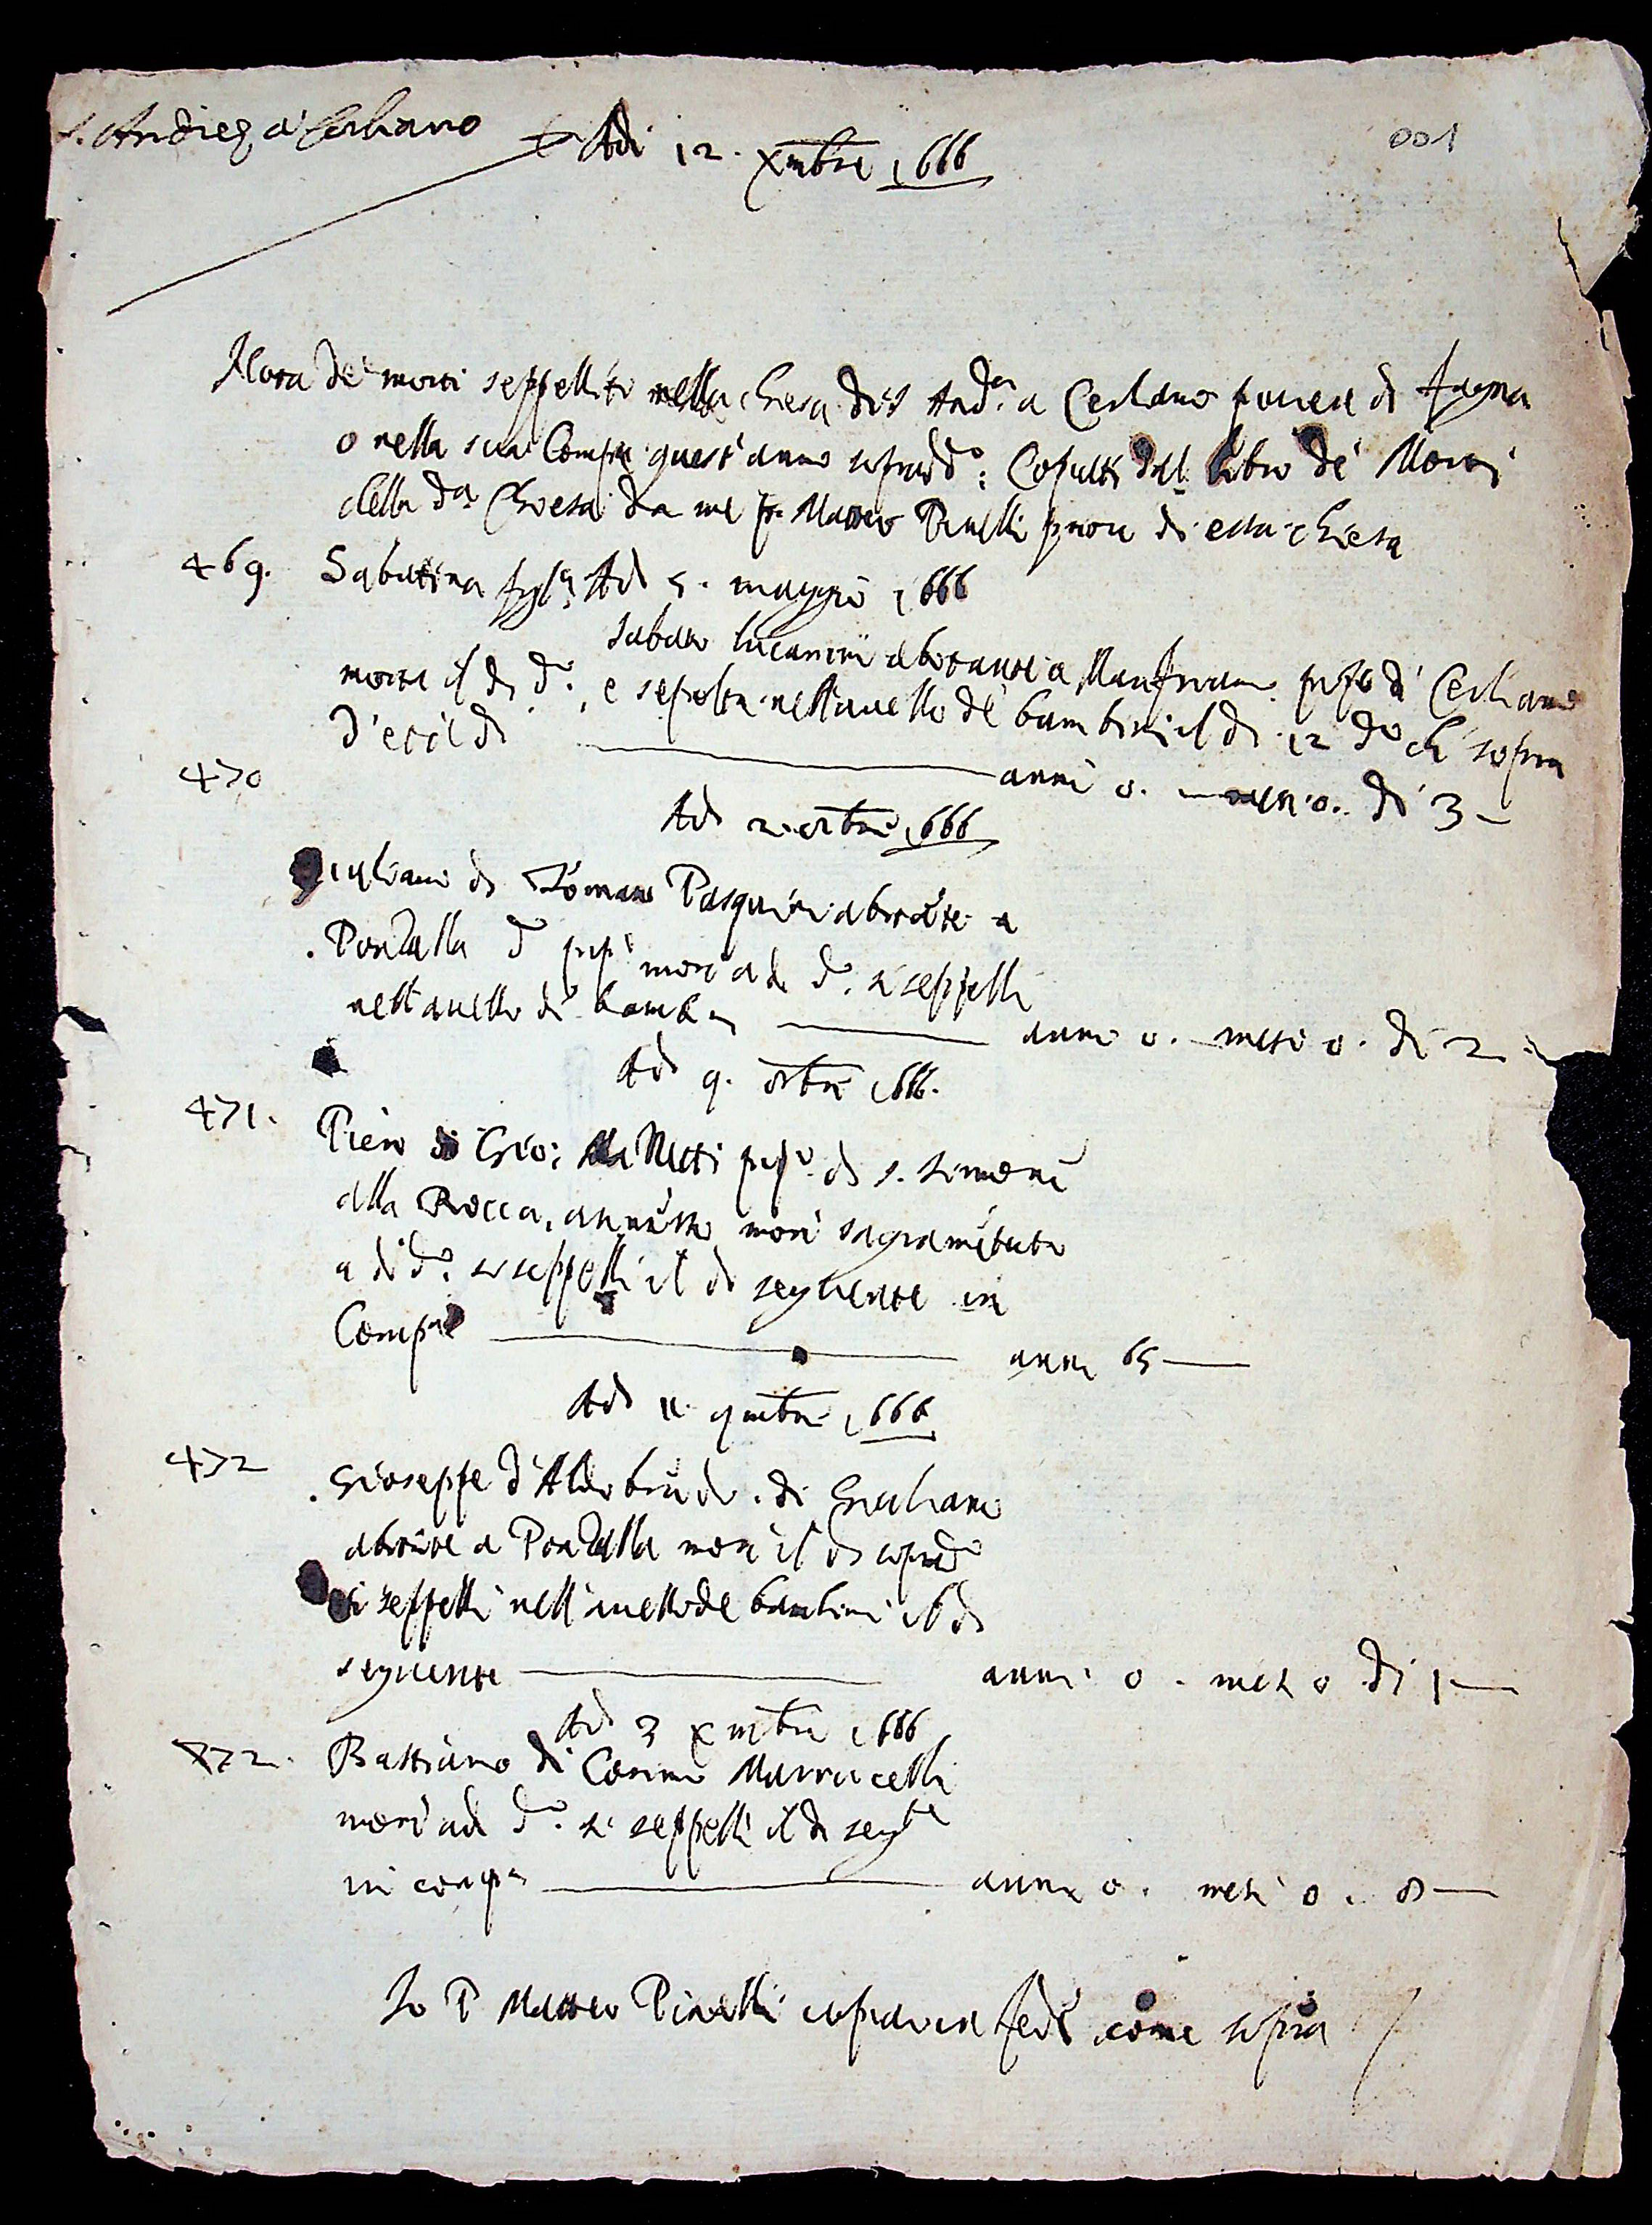 S. Andrea a Cerliano
Adi 12. Xmbre 1666
001
Nota de morti seppelliti nella chiesa di S And.a a Cerliano potesta di Fagna
o nella sua Comp.a quest'anno soprad.o: Copiati dal libro de Morti
della d.a Chiesa da me P. Matteo Pinelli priore di essa chiesa
469. Sabatina figl.a Adi 5. maggio 1666
Sabato abitante a popo di Cerliano
morta il di d.o, e sepolta nell'avello de bambini il di 12 d.o di sopra
d'età di anni 0. mesi 0. di 3
470
Adi 2 ottbre 1666
Giuliano di Tomaso Pasquini abitāte a
Pontalla d.o pop.o morì adi d.o. si seppellì
nell'avello di bambini anni 0. mesi 0. di 2
Adi 9. ottbre 1666.
471. Piero di Gio: Netti pop.o di S. Simone
alla Rocca, morì sagramētato
a di d.o. si seppellì il di seguente in
Comp.a anni 65
Adi 11. 9mbre 1666
472 Gioseppe d'Aldobrādo. di Giuliano
abitāte a Pontalla morì il di soprad.o
si seppellì nell'avello de bambini il di
seguente anni 0. mesi 0 di 1
Adi 3 Xmbre 1666
472. Bastiano di Cosimo Marrucelli
morì adi d.o. si seppellì il di seg.te
in comp.a anni 0. mesi 0. 8
Io P Matteo Pinelli sopra in fede come sopra